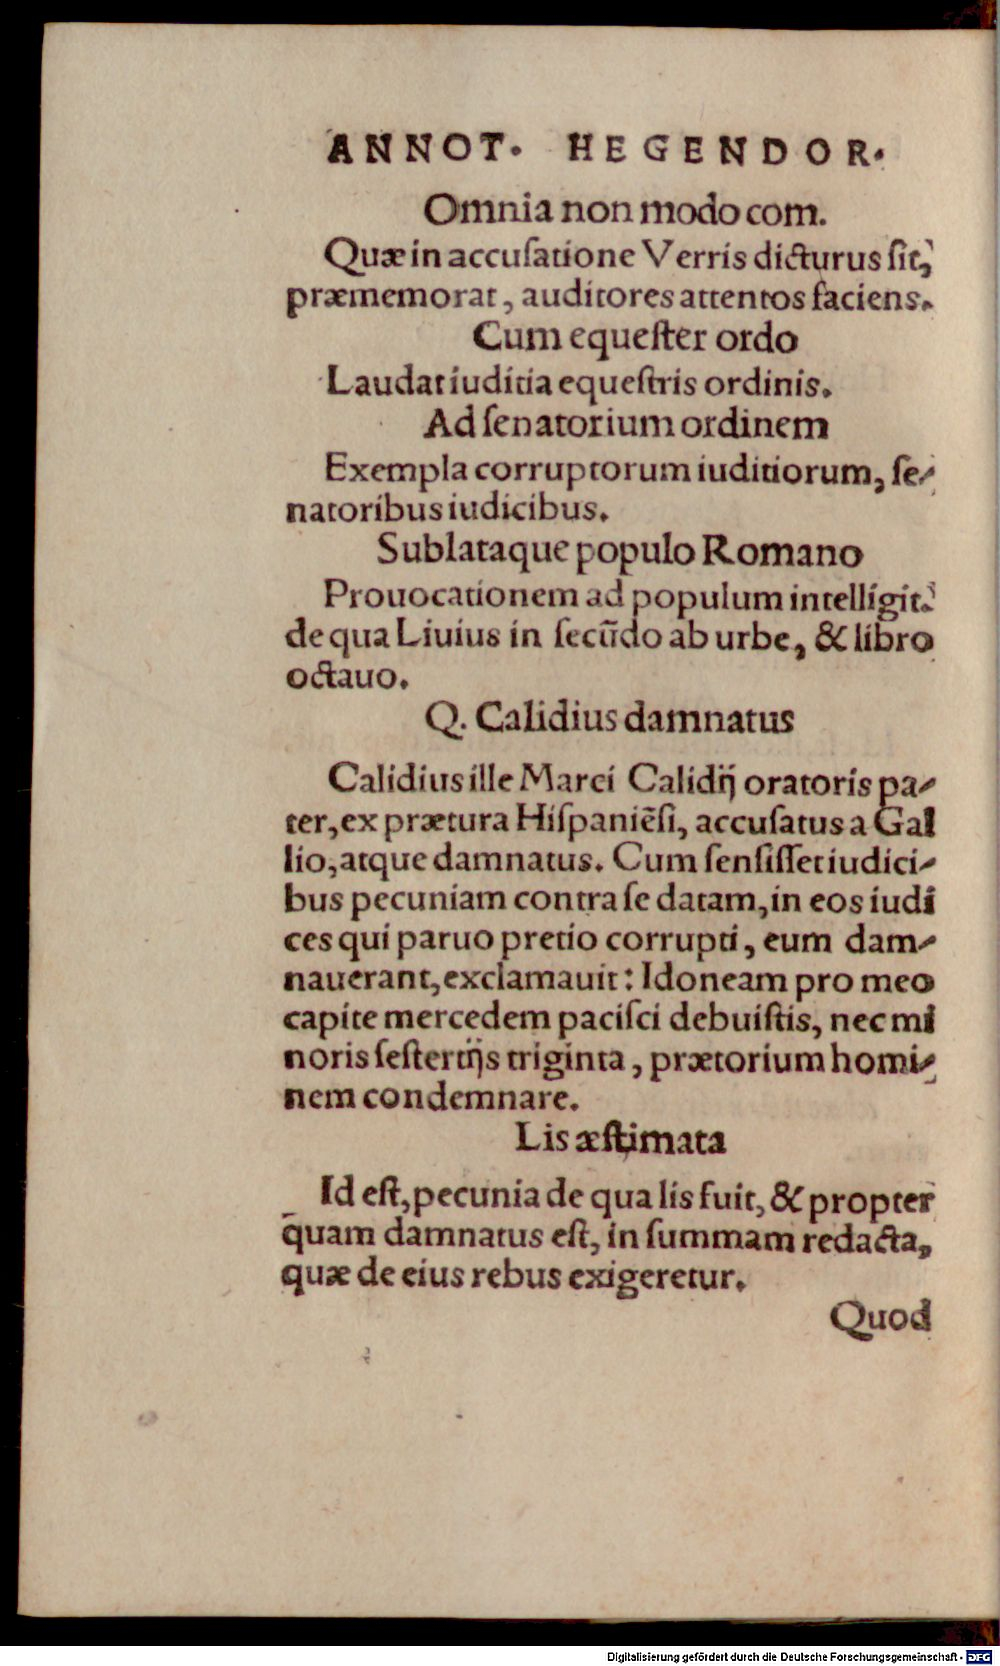 ANNOT. HEGENDOR.
Omnia non modo com.
Quæ in accuſatione Verris dicturus ſit,
præmemorat, auditores attentos faciens.
Cum equeſter ordo
Laudat iuditia equeſtris ordinis.
Ad ſenatorium ordinem
Exempla corruptorum iuditiorum, ſe-
natoribus iudicibus.
Sublataque populo Romano
Prouocationem ad populum intelligit.
de qua Liuius in ſecũdo ab urbe, & libro
octauo.
Q. Calidius damnatus
Calidius ille Marci Calidij oratoris pa-
ter, ex prætura Hiſpaniẽſi, accuſatus a Gal
lio, atque damnatus. Cum ſenſiſſet iudici-
bus pecuniam contra ſe datam, in eos iudi
ces qui paruo pretio corrupti, eum dam-
nauerant, exclamauit: Idoneam pro meo
capite mercedem paciſci debuiſtis, nec mi
noris ſeſtertijs triginta, prætorium homi-
nem condemnare.
Lis æſtimata
Id eſt, pecunia de qua lis fuit, & propter
quam damnatus eſt, in ſummam redacta,
quæ de eius rebus exigeretur.
Quod
Digitalisierung gefördert durch die Deutsche Forschungsgemeinschaft - DFG